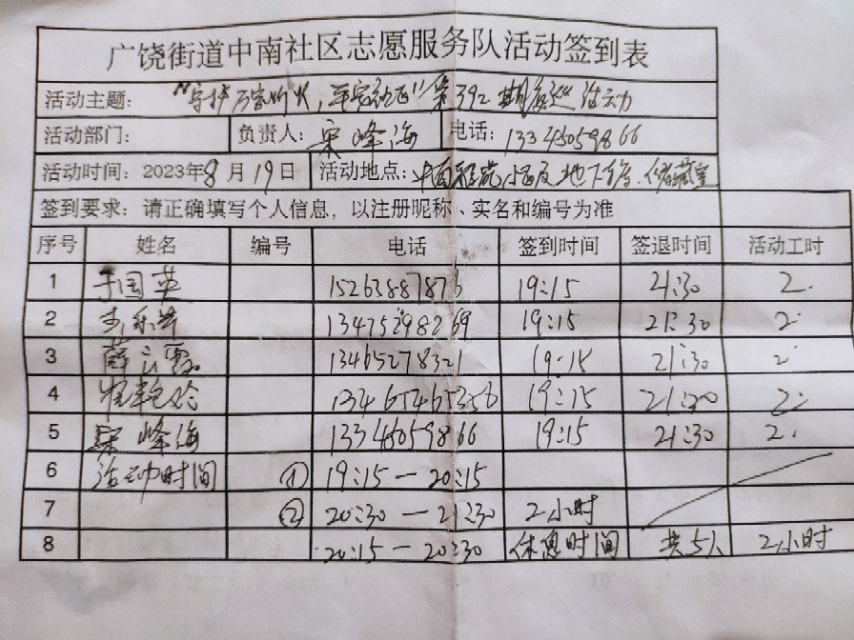 广饶街道中南社区志愿服务队活动签到表
活动主题：“守护万家灯火，平安社区”第392期夜巡活动
活动部门： 负责人：宋峰海 电话：13346059866
活动时间：2023年8月19日 活动地点：中南 小区及地下车库、储藏室
签到要求：请正确填写个人信息，以注册昵称、实名和编号为准
序号 姓名 编号 电话 签到时间 签退时间 活动工时
1 于国英 15263887873 19:15 21:30 2
2 13475298269 19:15 21:30 2
3 薛 13465278321 19:15 21:30 2
4 13465465356 19:15 21:30 2
5 宋峰海 13346059866 19:15 21:30 2
6 活动时间 ① 19:15—20:15
7 ② 20:30—21:30 2小时
8 20:15—20:30 休息时间 共5人 2小时